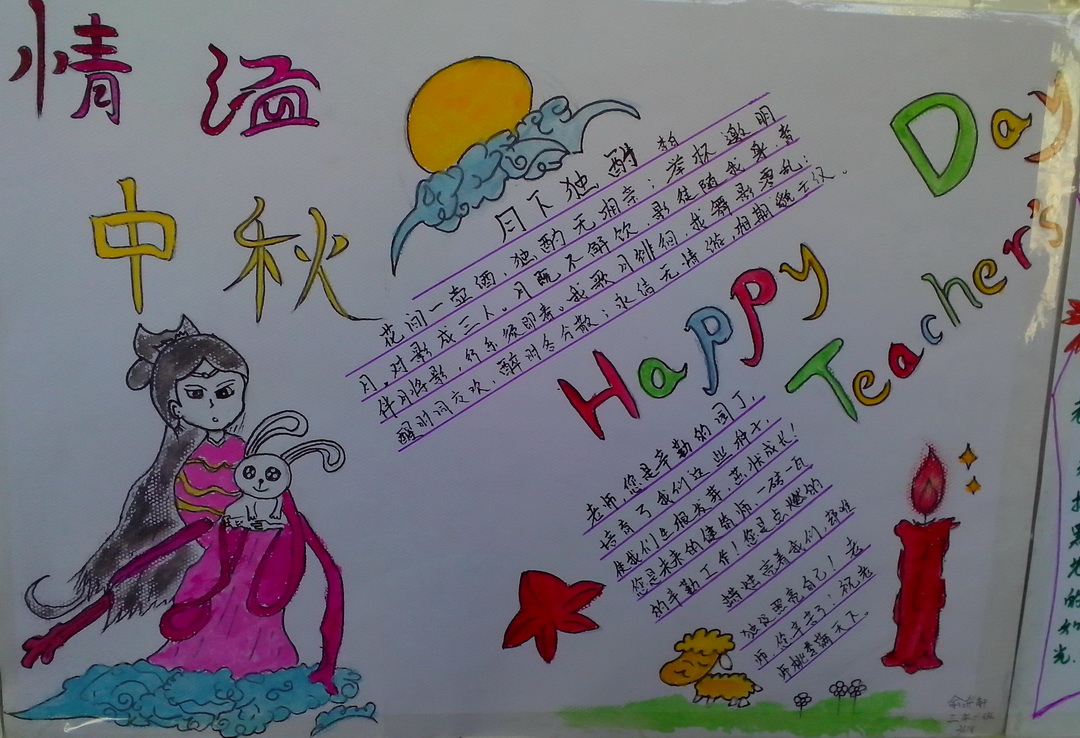 情溢
中秋
月下独酌
花间一壶酒，独酌无相亲；举杯邀明
月，对影成三人。月既不解饮，影徒随我身，暂
伴月将影，行乐须即春。我歌月徘徊，我舞影零乱；
醒时同交欢，醉时各分散；永结无情游，相期邈云汉。
Happy
Teacher's
Day
老师，您是辛勤的园丁，
培育了我们这些种子，
使我们生根发芽，茁壮成长！
您是未来的建筑师，一砖一瓦
的辛勤工作！您是点燃的
蜡烛，亮着我们，
照亮自己！老
师，您辛苦了！祝老
师桃李满天下。
三年一班
黑
光
的
如
光